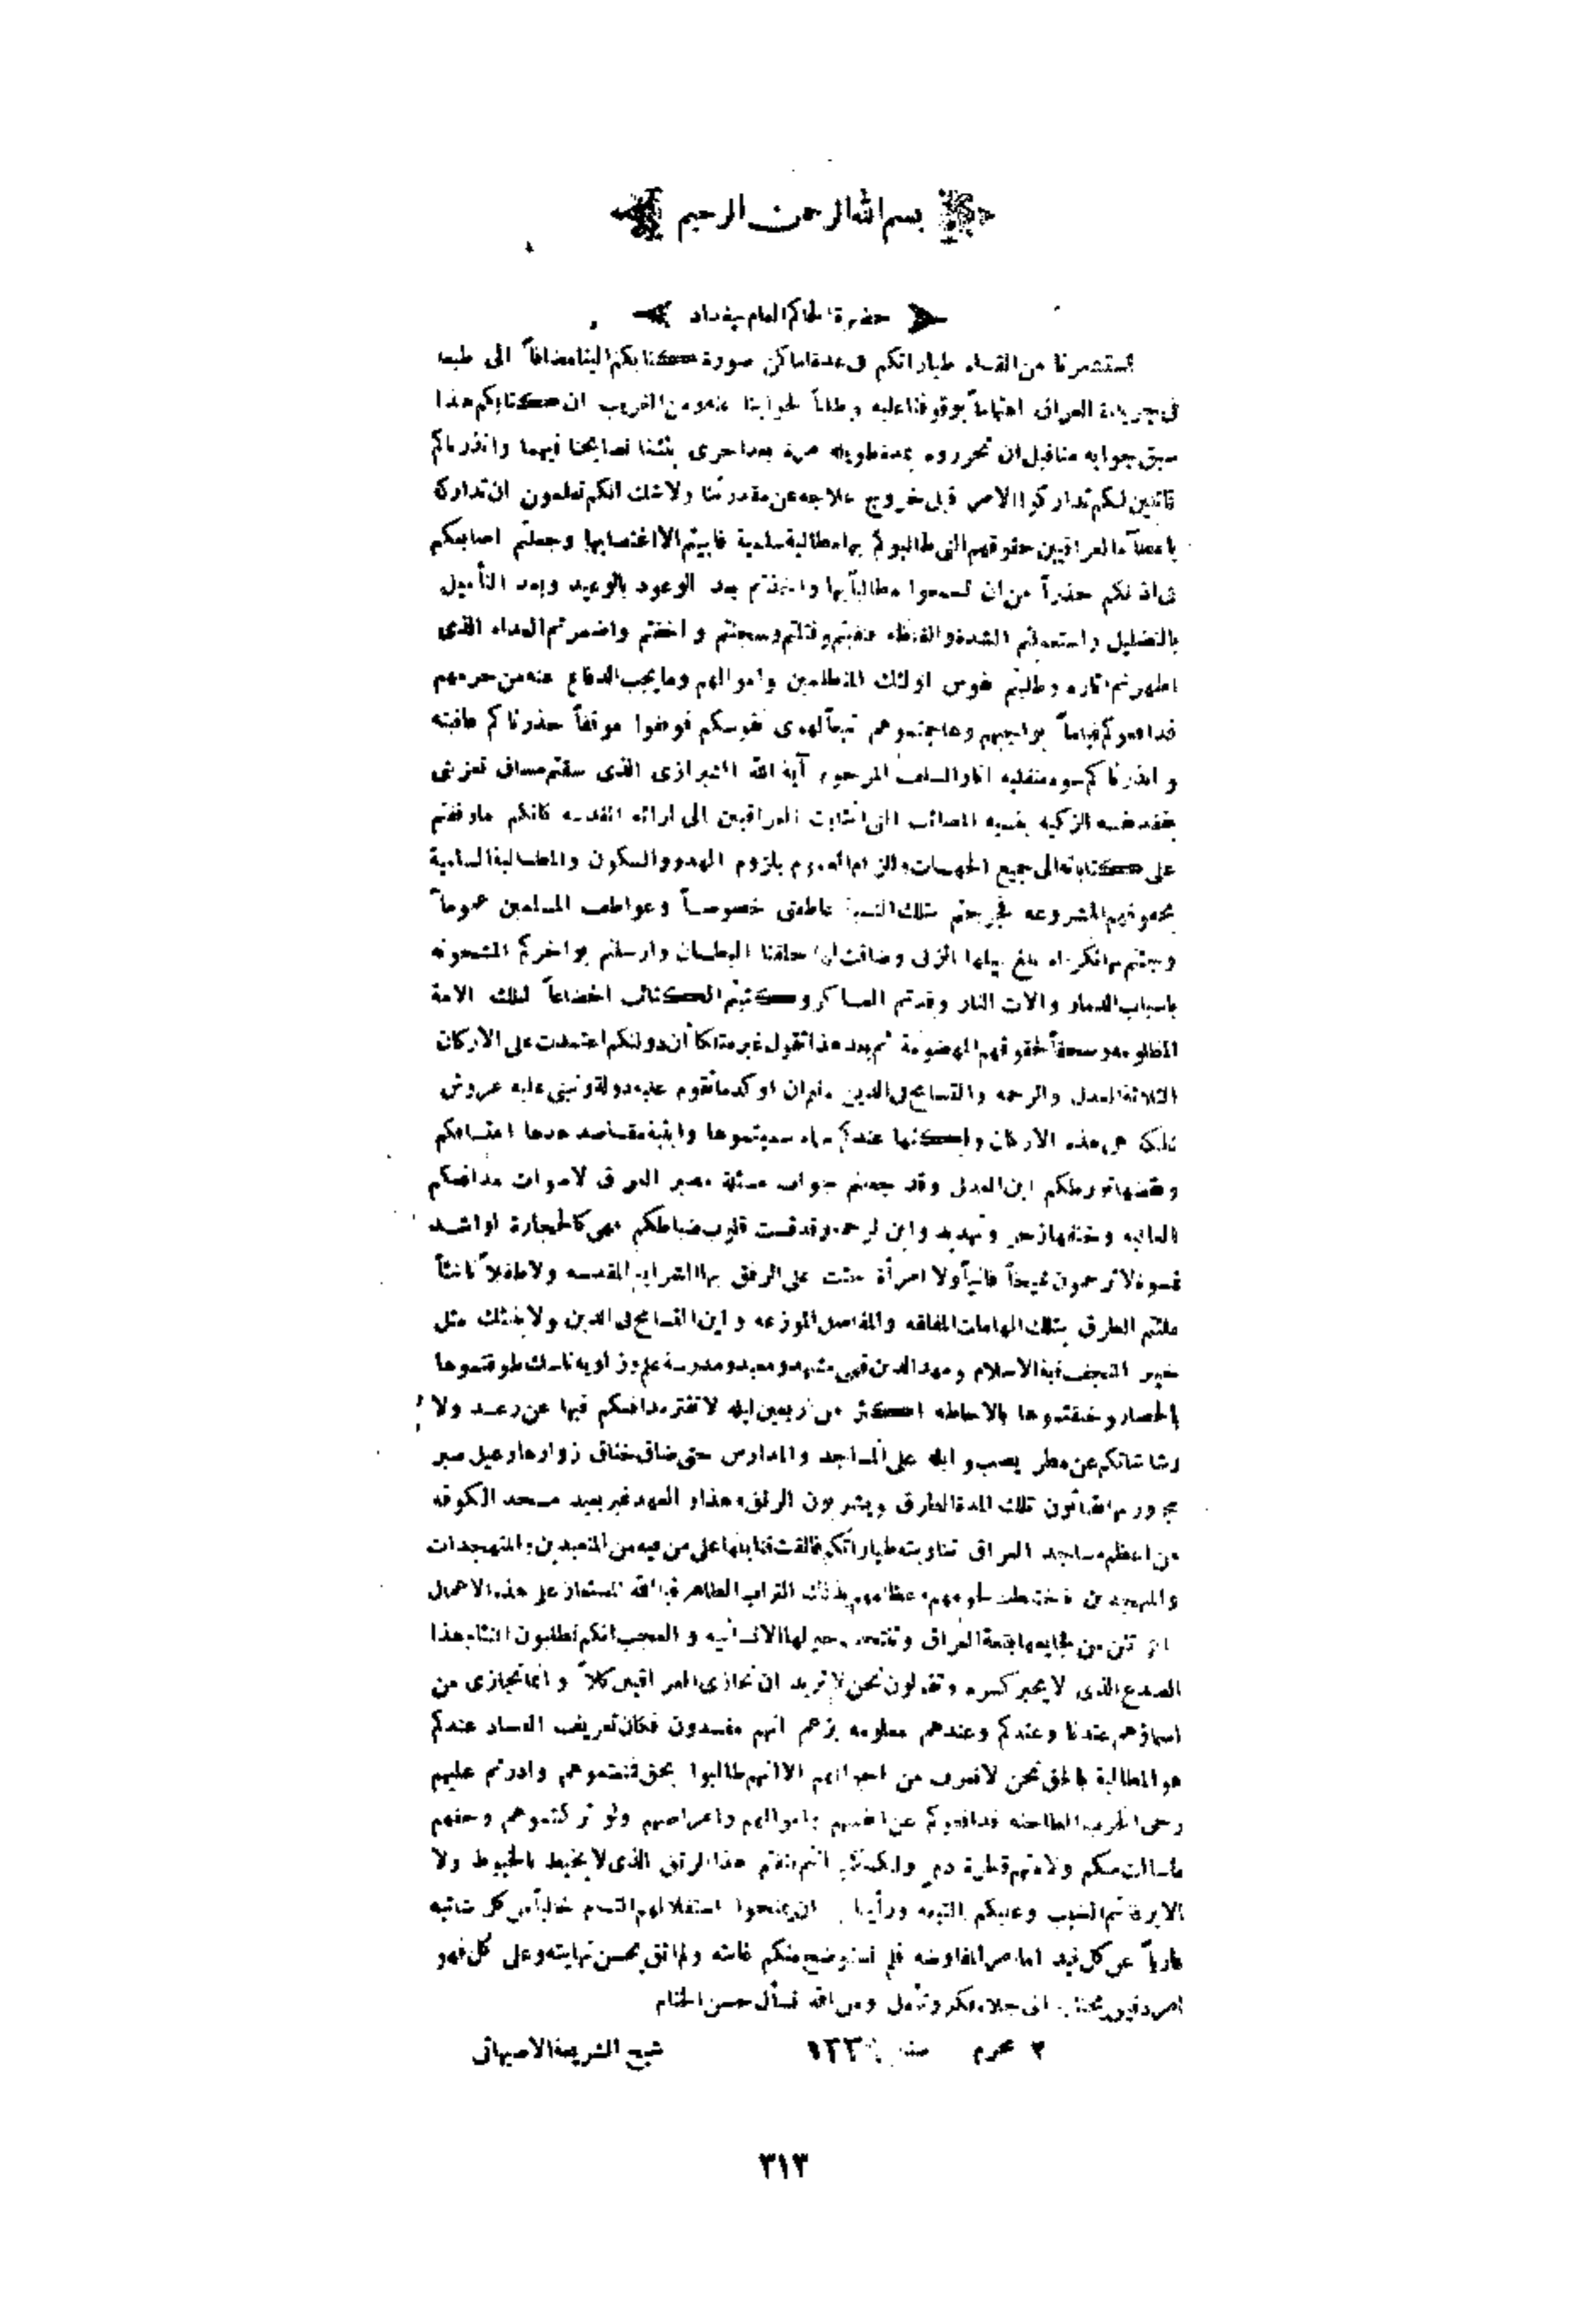 بسم الله الرحمن الرحيم
حضرة الحاكم العام ببغداد
استشعرنا من القاء طياراتكم في عدة اماكن صورة كتابكم الينا مضافاً الى طبعه
في جريدة العراق اهتماماً بوقوفنا عليه وطلباً لجوابنا عنه ومن الغريب ان كتابكم هذا
سبق جوابه منا قبل ان تحرروه بمدة طويله مرة بعد اخرى بثثنا نصايحنا فيهما وانذرناكم
قائلين لكم تداركوا الامر قبل خروج علاجه عن مقدرتنا ولا شك انكم تعلمون ان تداركه
باعطاء العراقيين حقوقهم التي طالبوكم بها مطالبة سلمية فابيتم الا اغتصابها وجعلتم اصابعكم
في اذانكم حذراً من ان تسمعوا مطالباً بها واخذتم بعد الوعود بالوعيد وبعد التأميل
بالتضليل واستعملتم الشدة والفظاظه فنفيتم وقتلتم وسجنتم و اخفتم واضمرتم العداء الذي
اظهرتم اثاره وطلبتم نفوس اولئك المتظلمين واموالهم وما يجب الدفاع عنه من حرمهم
فدافعوكم قياماً بواجبهم وهاجمتموهم تبعاً لهوى نفوسكم فوقفوا موقفاً حذرناكم عاقبته
و انذرناكم سوء منقلبه السلف المرحوم آية الله الشيرازي الذي سقتم مساق تعزيتي
بفقد نفسه الزكيه المصائب التي انتابت العراقيين الى ارائه المقدسه كانكم ما وقفتم
على كتاباته الى جميع الجهات والزام العموم بلزوم الهدوء والسكون والمطالبة السلمية
بحقوقهم المشروعه فجرحتم بتلك النسبة عاطفتي خصوصاً وعواطف المسلمين عموماً
وجئتم بها نكراء بلغ سيلها الزبى وضاقت لها حلقتا البطان وارسلتم بواخركم المشحونه
باسباب الدمار والات النار وقدتم العساكر وكتبتم الكتائب اخضاعاً لتلك الامة
المظلومه وسحقاً لحقوقهم المهضومة ثم بعد هذا تقول غير متلكأ ان دولتكم اعتمدت على الاركان
الثلاثة العدل والرحمه والتسامح في الدين نعم ان اوكد ما تقوم عليه دولة وتبنى عليه عروش
تملك هي هذه الاركان ولكنها عندكم اسماء سميتموها وابنية مقاصد هدها اعتسافكم
ونقضها تورطكم اين العدل وقد جعلتم جواب مسئلة مصير العراق لاصوات مدافعكم
وتهديد واين الرحمه وقد قست قلوب ضباطكم فهي كالحجارة او اشد
قسوة لا ترحمون شيخاً فانياً ولا امرأة حثت على الرفق بها الشرايع المقدسه ولا طفلاً ناشئاً
ملئتم الطرق بتلك الهامات المفلقه والمفاصل الموزعه و اين التسامح في الدين ولا ينبئك مثل
خبير النجف قبة الاسلام ومهد الدين فهي مشهد ومعبد ومدرسة علم وزاويه ناسك طوقتموها
بالحصار وخنقتموها بالاحاطه اكثر من اربعين ليله لا تفتر مدافعكم فيها عن رعد ولا
رشاشاتكم عن مطر يصب وابله على المساجد والمدارس حتى ضاق خناق زوارها وعيل صبر
مجاوريها يقتاتون تلك المدة الطارق ويشربون الرنق هذا و العهد غير بعيد مسجد الكوفه
من اعظم مساجد العراق تناوبته طياراتكم فالقت قنابلها على من فيه من المتعبدين والمتهجدات
والمتهجدين فاختلطت لحومهم وعظامهم بذلك التراب الطاهر فبالله المستعان على هذه الاعمال
التي تئن من فجايعها بقعة العراق الانسانيه و العجب انكم تطلبون التئام هذا
الصدع الذي لا يجبر كسره وتقولون نحن لا نريد ان نجازي العراقيين كلاً وانما نجازي من
اسماؤهم عندنا وعندكم وعندهم معلومه بزعم انهم مفسدون فكان تعريف الفساد عندكم
هو المطالبة بالحق نحن لا نعرف من احوالهم الا انهم طالبوا بحق فمنعتموهم وادرتم عليهم
رحى الحرب الطاحنه فدافعوكم عن انفسهم واموالهم واعراضهم ولو تركتموهم وحقهم
ما سالت منكم ولا منهم قطرة دم ولكنكم انتم فتقتم هذا الرتق الذي لا يخيط بالخيوط ولا
الابرة انتم السبب وعليكم التبعه ورأينا ان يمنحوا استقلالهم التام خالياً من كل شائبه
عارياً عن كل قيد اما امر المفاوضه فلم نستوضح منكم غايته ولم نثق بحسن نهايته وعلى كل فهو
امر دقيق يحتاج الى جلاء فكر وتأمل ومن الله نسأل حسن الختام
٣ محرم سنه ١٣٣٩ شيخ الشريعة الاصبهاني
٣١٣